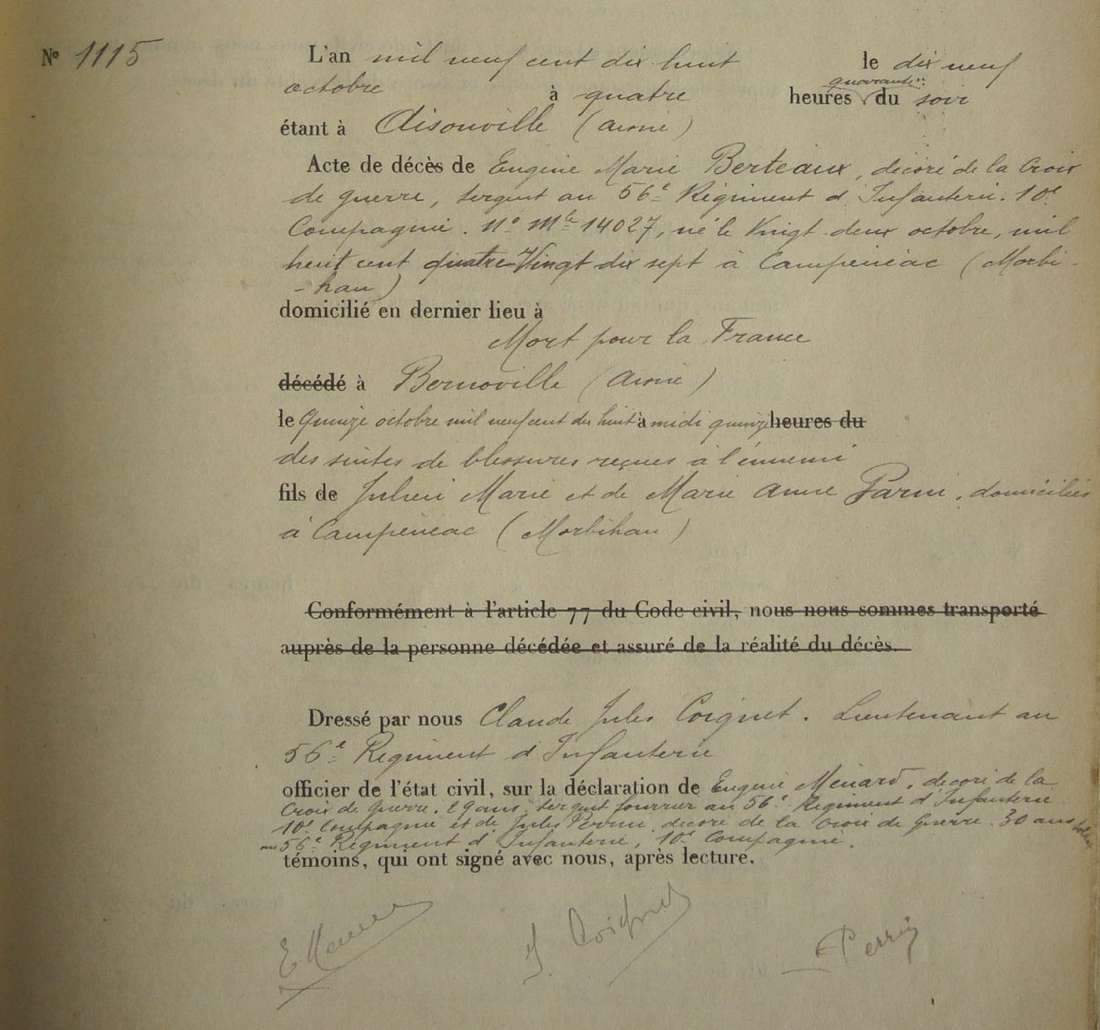 N° 1115
L'an mil neuf cent dix huit le dix neuf
quarante
octobre à quatre heures du soir
étant à Aisonville (Aisne)
Acte de décès de Eugène Marie Berteaux, décoré de la Croix
de guerre, sergent au 56e Régiment d'Infanterie. 10e
Compagnie. N° Mle 14027, né le Vingt deux octobre, mil
huit cent quatre Vingt dix sept à Campénéac (Morbi-
-han)
domicilié en dernier lieu à
Mort pour la France
décédé à Bernoville (Aisne)
le Quinze octobre mil neuf cent dix huit à midi quinze heures du
des suites de blessures reçues à l'ennemi
fils de Julien Marie et de Marie Anne, domiciliés
à Campénéac (Morbihan)
Conformément à l'article 77 du Code civil, nous nous sommes transporté
auprès de la personne décédée et assuré de la réalité du décès.
Dressé par nous Claude Jules Coignet. Lieutenant au
56e Régiment d'Infanterie
officier de l'état civil, sur la déclaration de Eugène Ménard, décoré de la
Croix de Guerre. 29 ans, sergent fourrier au 56e Régiment d'Infanterie
10e Compagnie et de Jules Perrin, décoré de la Croix de Guerre. 30 ans
au 56e Régiment d'Infanterie, 10e Compagnie.
témoins, qui ont signé avec nous, après lecture.
J. Coignet
Perrin